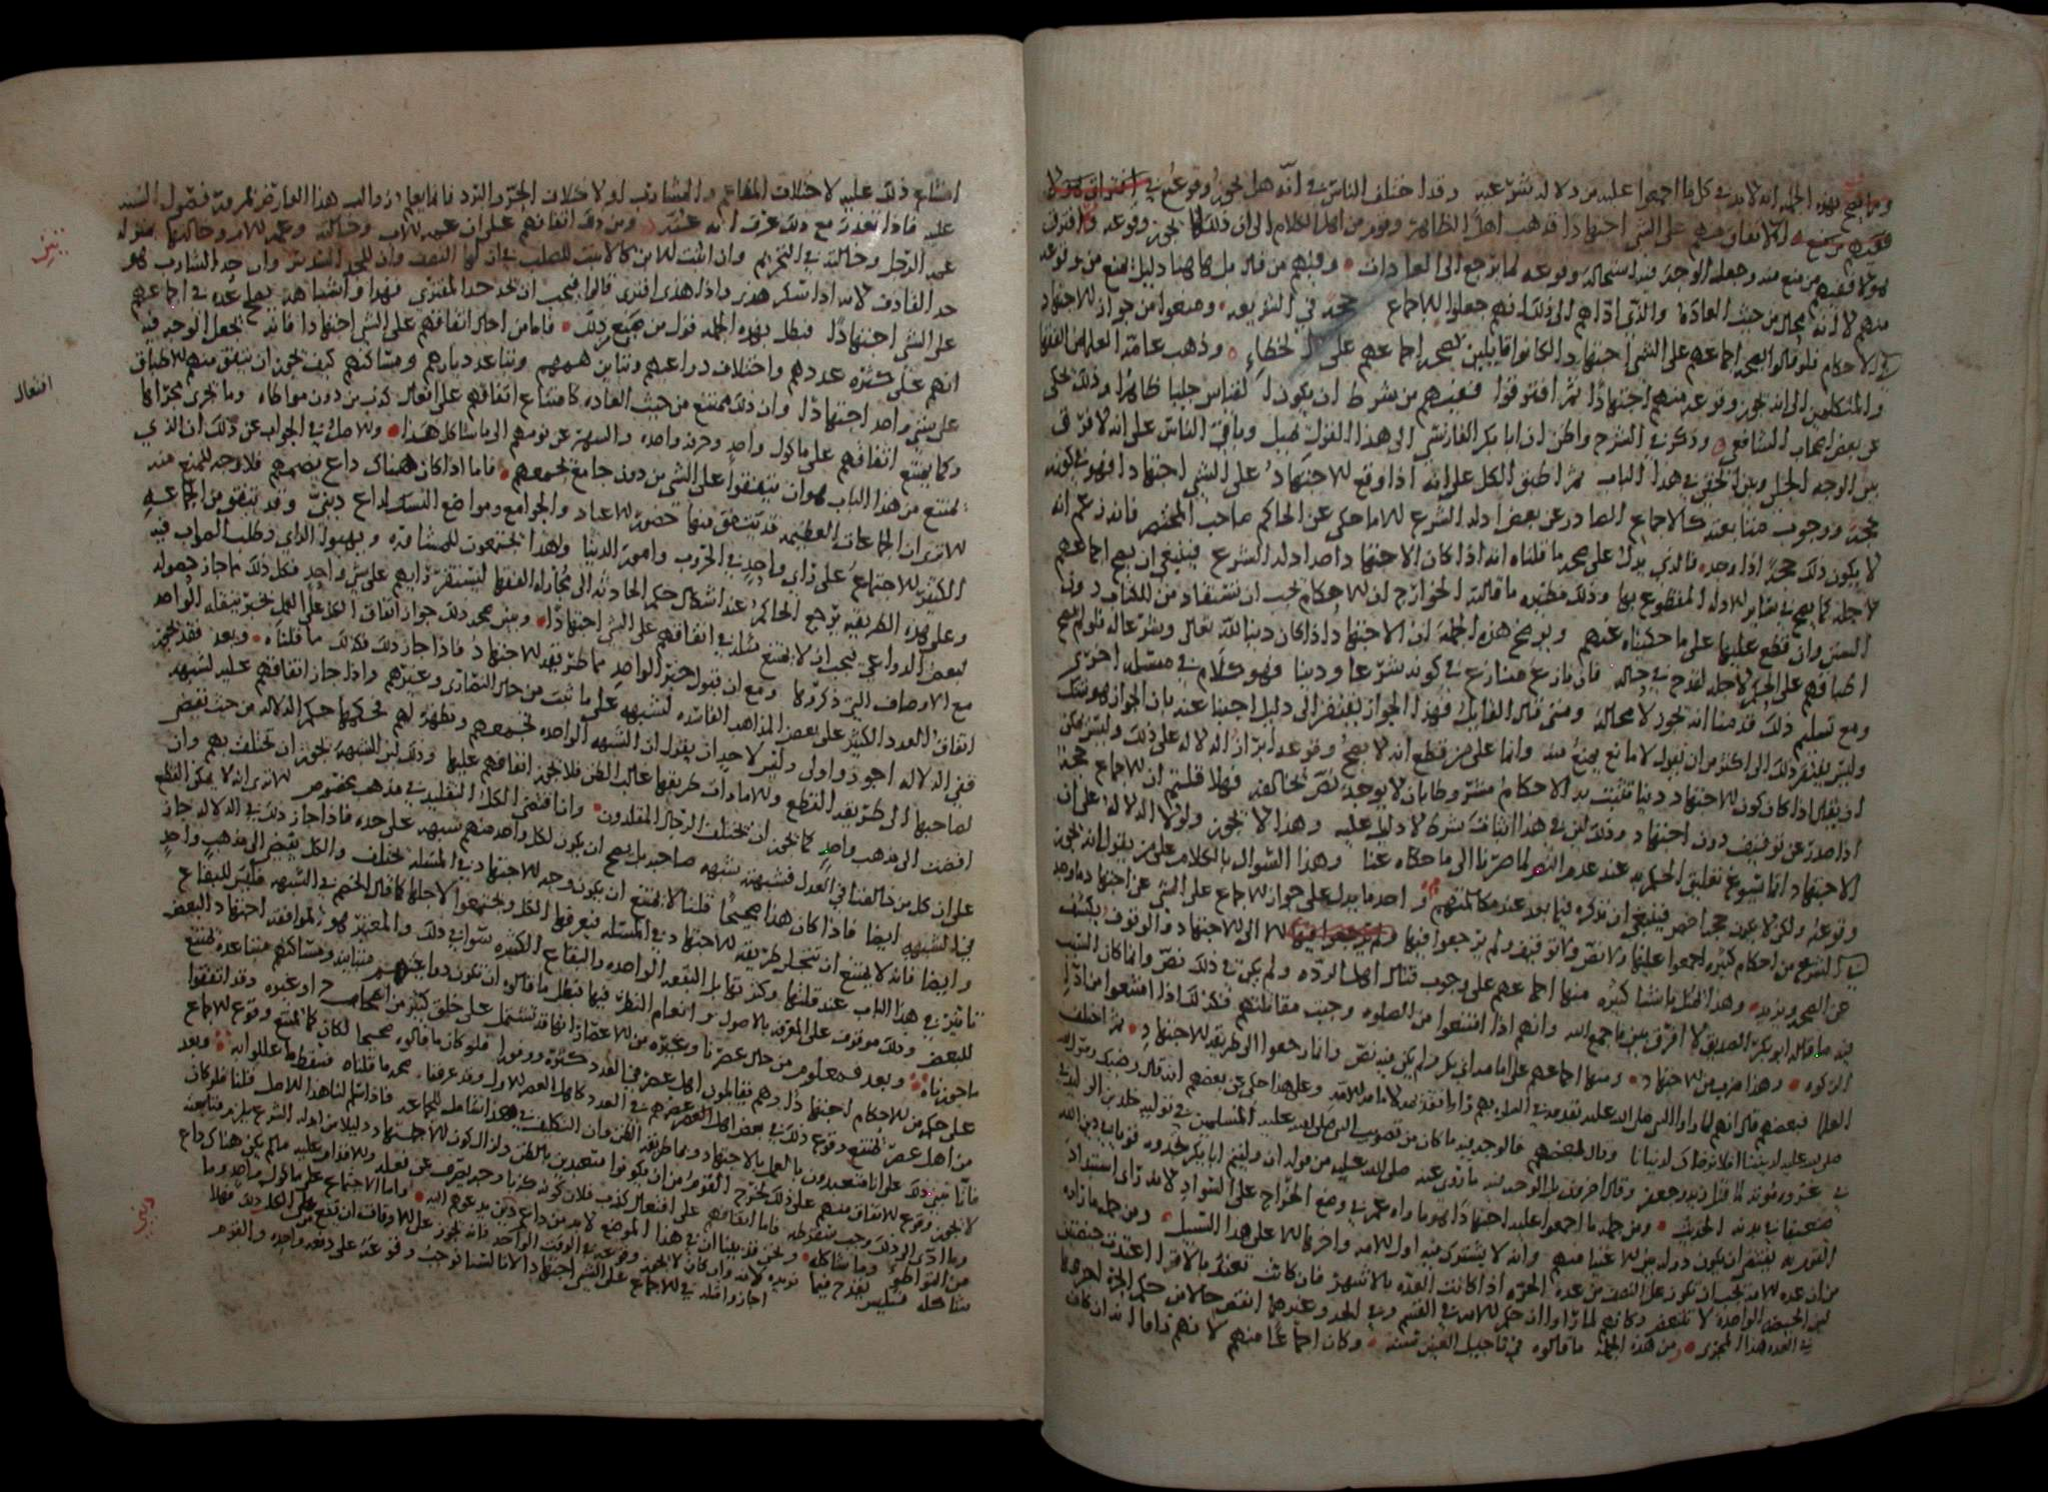 وما يصح بهذه الجملة انه لا بد في كل ما اجمعوا عليه من دلالة شرعية وقد اختلف الناس في انه هل يجوز وقوعه
الاتفاق منهم على الشيء اجتهادا فذهب اهل الظاهر وقوم من اهل الكلام الى ان ذلك لا يجوز وقوعه وافترق
هؤلاء فمنهم من منع منه وجعل الوجه فيه استحالة وقوعه لما يرجع الى العادات وفيهم من قال بل هاهنا دليل يمنع من وقوعه
منهم لا لانه محال من حيث العادة والذي اداهم الى ذلك انهم جعلوا للاجماع حجة في الشريعة ومنعوا من جواز الاجتهاد
في الاحكام فلو قالوا بصحة اجماعهم على الشيء اجتهادا لكانوا قايلين بصحة اجماعهم على الخطاء وذهب عامة العلماء من الفقها
والمتكلمين الى انه يجوز وقوعه منهم اجتهادا ثم افترقوا فمنهم من شرط ان يكون القياس جليا ظاهرا وذلك حكي
عن بعض اصحاب الشافعي وذكر في الشرح واظن ان ابا بكر الفارسي الى هذا القول يميل وباقي الناس على انه لا فرق
بين الوجه الجلي وبين الخفي في هذا الباب ثم اطبق الكل على انه اذا وقع الاجتهاد على الشيء اجتهادا فهو في كونه
حجة ووجوب متابعته كالاجماع الصادر عن بعض ادلة الشرع الا ما حكي عن الحاكم صاحب المختصر فانه زعم انه
لا يكون ذلك حجة اذا وجد فالذي يدل على صحة ما قلناه انه اذا كان الاجتهاد احد ادلة الشرع فينبغي ان يصح اجماعهم
لاجله كما يصح في سائر الادلة المقطوع بها وذلك نظير ما قالته الخوارج ان الاحكام يجب ان تستفاد من الكتاب دون
السنن وان قطع عليها على ما حكيناه عنهم ويوضح هذه الجملة ان الاجتهاد اذا كان دينا لله تعالى وشرعا له فلو لم يصح
اطباقهم على الحكم لاجله لقدح في حاله فان نازع منازع في كونه شرعا ودينا فهو كلام في مسئلة اخرى
ومع تسليم ذلك قد منا انه يجوز لا محالة ومتى قال القايل فهذا الجواز يفتقر الى دليل اجبنا عنه بان الجواز هو الشك
وليس يفتقر ذلك الى اكثر من ان يقول لا مانع يمنع منه وانما على من قطع انه لا يصح وقوعه ابراز الدلالة على ذلك وليس يمكن
ان يقال اذا كان كون الاجتهاد دينا تثبت به الاحكام مشروطا بان لا يوجد نص يخالفه فهلا قلتم ان الاجماع حجة
اذا صدر عن توقيف دون اجتهاد وذلك لان في هذا اثبات شرط لا دليل عليه وهذا لا يجوز ولولا الدلالة على ان
الاجتهاد انما يسوغ تعليق الحكم به عند عدم النص لما صرنا الى ما حكاه عنا وهذا السؤال بالكلام على من يقول انه يجوز
وقوعه ولكن لا يكون حجة اخص فينبغي ان نذكره فيما بعد عند مكالمتهم احد ما يدل على جواز الاجماع على الشيء عن اجتهاد ما وجد
في الشرع من احكام كثيرة اجمعوا عليها ولا نص ولا توقيف ولم يرجعوا فيها الا الى الاجتهاد والوقوف يكشف
عن الصحة ويزيد وهذا نحو اشيا كثيرة منها اجماعهم على وجوب قتال اهل الردة ولم يكن في ذلك نص وانما كان السبب
فيه ما قاله ابو بكر الصديق لا افرق بين ما جمع الله وانهم اذا امتنعوا من الصلوة وجبت مقاتلتهم فكذلك اذا امتنعوا من اداء
الزكوة وهذا ضرب من الاجتهاد ومنها اجماعهم على امامة ابي بكر ولم يكن فيه نص وانما رجعوا الى طريقة الاجتهاد ثم اختلف
العلما فبعضهم قال انهم لما راوا النبي صلى الله عليه تقدمه في الصلوة بهم راوا تقديمه للامامة وعلى هذا حكي عن بعضهم انه قال رضيك رسول الله
صلى الله عليه لديننا افلا نرضاك لدنيانا وقال بعضهم فالوجه فيه ما كان من تصويب النبي صلى الله عليه المسلمين في تولية خالد بن الوليد
في غزوة مؤتة لما قتل زيد وجعفر وقال اخرون بل الوجه فيه ما روي عنه صلى الله عليه من قوله ان وليتم ابا بكر تجدوه قويا في دين الله
ضعيفا في بدنه الحديث ومن جملة ما اجمعوا عليه اجتهادا هو ما راه عمر في وضع الخراج على السواد لانه راى استبداد
القوم به يقتضي ان يكون دولة بين الاغنيا منهم وانه لا يشترك فيه اول الامة واخرها الا على هذا السبيل ومن جملة ما راوه
من ان عدة الامة يجب ان تكون على النصف من عدة الحرة اذا كانت العدة بالاشهر فان كانت تعتد بالاقرا اعتدت حيضتين
لان الحيضة الواحدة لا تتبعض وكانهم لما راوا ان حكم الامة في القسم وفي الحد وغيرهما انقص حالا من حكم الحرة اجروها
في العدة هذا المجرى ومن هذه الجملة ما قالوه في تاجيل العنين سنة وكان اجماعا منهم لانهم راوا انه ان كان
امتناع ذلك عليه لاختلاف المطاعم والمشارب او لاختلاف الحر والبرد فانما يعلم زوال هذا العارض لمرور فصول السنة
عليه فاذا تعذر مع ذلك عرف انه عنين ومن ذلك اتفاقهم على ان عمة الاب وخالته وعمة الام وخالتها بمنزلة
عمة الرجل وخالته في التحريم وان البنت للابن كالابنت للصلب في ان لها النصف وان للجد السدس وان حد الشارب هو
حد القاذف لانه اذا سكر هذى واذا هذى افترى قالوا فيجب ان يحد حد المفتري فهذا واشباهه يصحح عده في اجماعهم
على الشيء اجتهادا فبطل بهذه الجملة قول من يمنع ذلك فاما من احال اتفاقهم على الشيء اجتهادا فانه يجعل الوجه فيه
انهم على كثرة عددهم واختلاف دواعيهم وتباين هممهم وتباعد ديارهم ومساكنهم كيف يجوز ان يتفق منهم الاطباق
على شيء واحد اجتهادا وان ذلك ممتنع من حيث العادة كامتناع اتفاقهم على افتعال كذب من دون مواطاة وما يجري مجراها
وكما يمتنع اتفاقهم على ماكول واحد وحرفة واحدة والسهر عن نومهم الى ما شاكل هذا والاصل في الجواب عن ذلك ان الذي
يمتنع من هذا الباب هو ان يتفقوا على الشيء من دون جامع يجمعهم فاما اذا كان هناك داع يضمهم فلا وجه للمنع منه
الا ترى ان الجماعات العظيمة قد يتفق منها حضور الاعياد والجوامع ومواضع النسك لداع ديني وقد يتفق من الجماعة
الكثيرة الاجتماع على راي واحد في الحروب وامور الدنيا ولهذا يجتمعون للمشاورة ويبتغوا الراي وطلب الصواب فيه
وعلى هذه الطريقة يرجع الحاكم عند اشكال حكم الحادثة الى مجاراة الفقها ليستقر رايهم على شيء واحد فكل ذلك ما جاز حصوله
لبعض الدواعي فيجب ان لا يمتنع مثله في اتفاقهم على الشيء اجتهادا ويبين صحة ذلك جواز اتفاق الكل على العمل بخبر ينقله الواحد
مع الاوصاف التي ذكروها ومع ان قبول خبر الواحد مما طريقه الاجتهاد فاذا جاز ذلك فكذلك ما قلناه وبعد فقد يجوز
اتفاق العدد الكثير على بعض المذاهب الفاسدة لشبهة على ما ثبت من حال النصارى وغيرهم واذا جاز اتفاقهم عليه لشبهة
ففي الدلالة اجوز واولى وليس لاحد ان يقول ان الشبهة الواحدة تجمعهم وتظهر لهم فحكمها حكم الدلالة من حيث تفضي
لصاحبها الى طريقة القطع والامارات طريقها غالب الظن فلا يجوز اتفاقهم عليها وذلك لان الشبهة يجوز ان تختلف بهم وان
افضت الى مذهب واحد كما يجوز ان يختلف الرجال المقلدون وان اقتضى الكل التقليد في مذهب مخصوص الا ترى انه لا يمكن القطع
على ان كل من خالفنا في العدل فشبهته شبهة صاحبه بل يصح ان يكون لكل واحد منهم شبهة على حدة فاذا جاز ذلك في الدلالة جاز
في الشبهة ايضا فاذا كان هذا صحيحا قلنا لا يمتنع ان يكون وجه الاجتهاد في المسئلة يختلف والكل يفضي الى مذهب واحد
وايضا فانه لا يمتنع ان تتجلى طريقة الاجتهاد في المسئلة فيعرفها الكل ويجتمعوا لاجلها كما قال الخصم في الشبهة فليس للبقاع
تاثير في هذا الباب عند قلتها وكثرتها بل البقعة الواحدة والبقاع الكثيرة سوا في ذلك والمعتبر هو الموافقة اجتهاد البعض
للبعض وذلك موقوف على المعرفة بالاصول وانعام النظر فيها فبطل ما قالوه ان تكون دواعيهم متباينة ومساكنهم متباعدة يمتنع
ما جوزناه وبعد فمعلوم من حال عصرنا وغيره من الاعصار انها قد تشتمل على خلق كثير من اصحاب ح او غيره وقد اتفقوا
على حكم من الاحكام اجتهادا وهم يقابلون اهل عصر في العدد كثرة ووفورا فلو كان ما قالوه صحيحا لكان كما يمتنع وقوع الاجماع
من اهل عصر يمتنع وقوع ذلك في بعض اهل العصر هم في العدد كاهل العصر الاول وقد عرفنا صحة ما قلناه فسقط ما عللوا به وبعد
فانا نبني ذلك على انا متعبدون بالعمل بالاجتهاد وبما طريقه الظن وان التكليف في هذا انما هو للجماعة فاذا سلم لنا هذا الاصل قلنا فلو كان
لا يجوز وقوع الاتفاق منهم على ذلك يخرج القوم من ان يكونوا متعبدين بالظن ولزال كون الاجتهاد دليلا من ادلة الشرع يلزم متابعته
وما ادى الى ذلك وجب سقوطه فاما اتفاقهم على افتعال كذب فلان كونه كذبا وجه يصرف عن فعله والاقدام عليه ما لم يكن هناك داع
من التواطؤ وما شاكله ونحن قد بينا ان في هذا الموضع لا بد من داع ديني يدعوهم اليه واما الاجتماع على ماكول واحد وما
شاكله فليس يقدح فيما نريده لانه وان كان لا يجوز وقوعه في الوقت الواحد فانه يجوز على الاوقات ان يقع من الكل ذلك فهلا
اجازوا مثله في الاجماع على الشيء اجتهادا لانا لسنا نوجب وقوعه على دفعة واحدة والقوم
افتعال